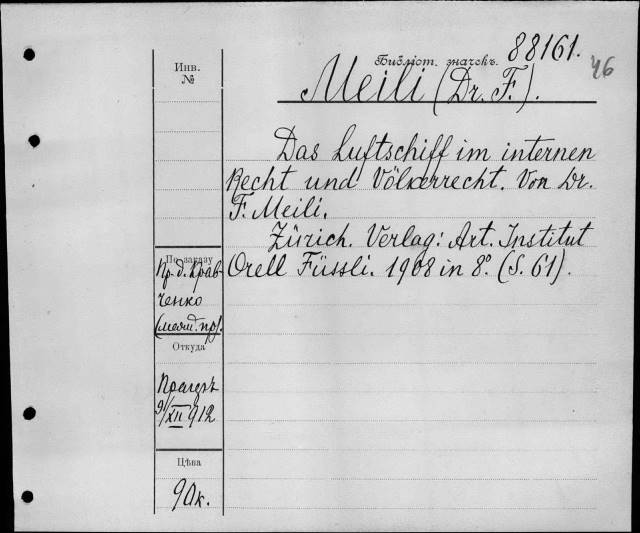 88161.
46
Библіот. значекъ.
Инв.
№
Meili (Dr. F.).
Das Luftschiff im internen
Recht und Völkerrecht. Von Dr.
F. Meili.
Zürich. Verlag: Art. Institut
Orell Füssli. 1908 in 8º. (S. 61).
По заказу
Пр.-д. Крав-
ченко
Откуда
9/XII 912
Цѣна
90к.